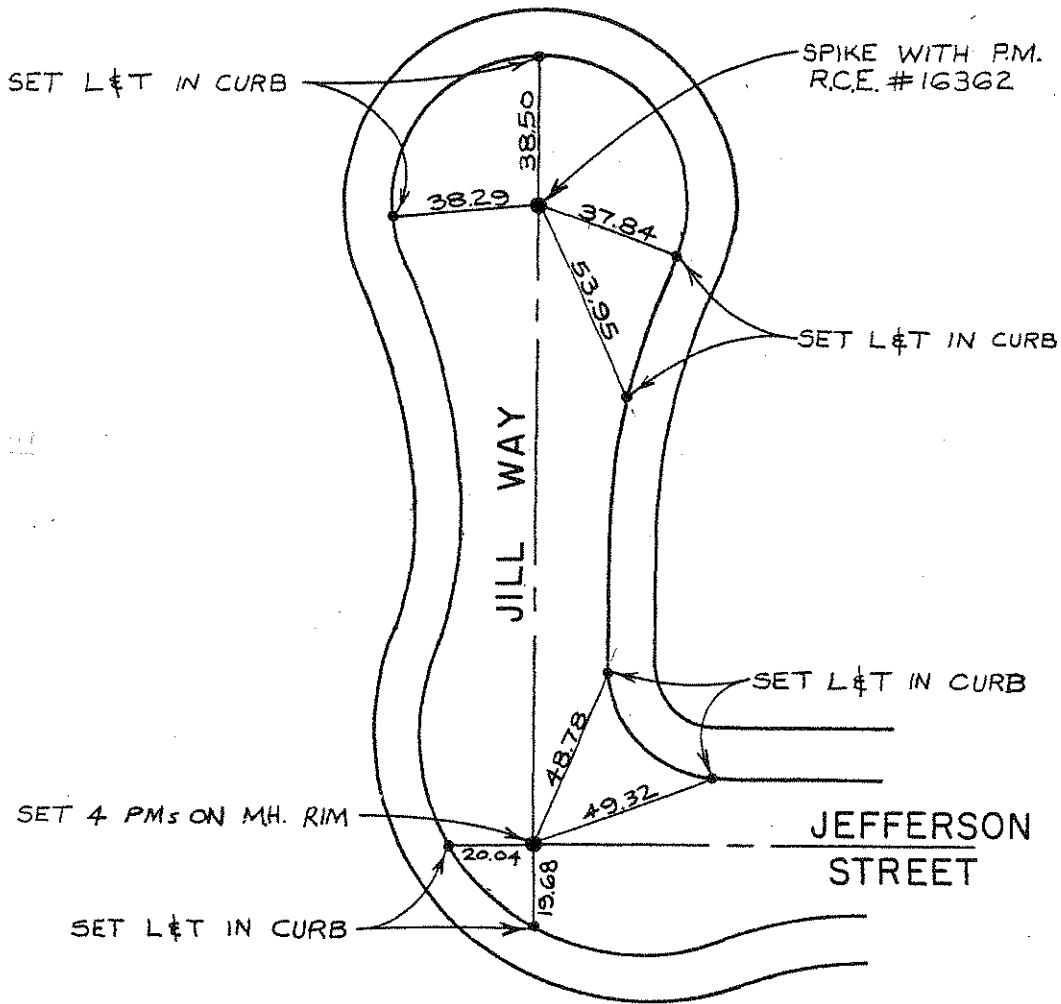 SET L&T IN CURB
SPIKE WITH P.M.
R.C.E. #16362
38.50
38.29
37.84
53.95
SET L&T IN CURB
JILL WAY
SET L&T IN CURB
48.78
49.32
SET 4 PMs ON MH. RIM
20.04
19.68
JEFFERSON
STREET
SET L&T IN CURB